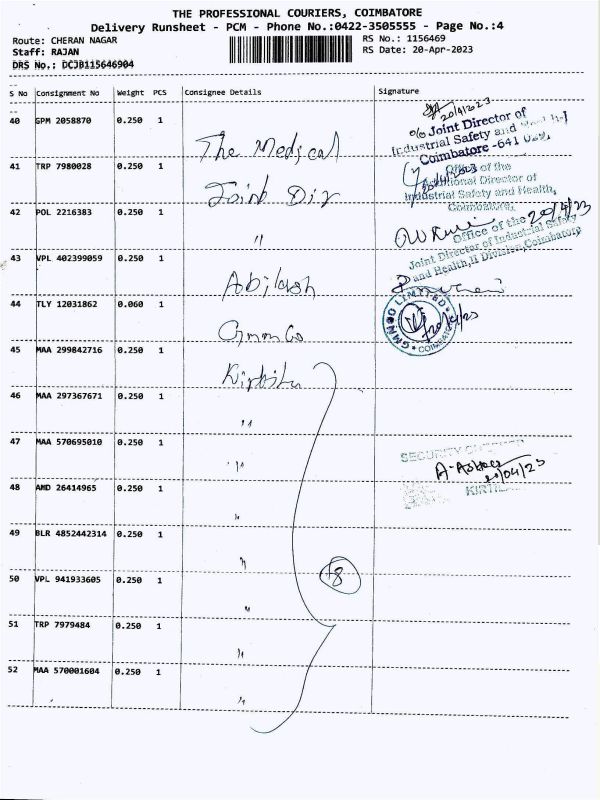 THE PROFESSIONAL COURIERS, COIMBATORE
Delivery Runsheet - PCM - Phone No.:0422-3505555 - Page No.:4
Route: CHERAN NAGAR
RS No.: 1156469
Staff: RAJAN
RS Date: 20-Apr-2023
DRS No.: DCJB115646904
S No Consignment No Weight PCS Consignee Details Signature
40 GPM 2058870 0.250 1 The Medical
20/4/2023
o/o Joint Director of
Industrial Safety and
Coimbatore -641
41 TRP 7980028 0.250 1 Joint Dir
Office of the
Additional Director of
Industrial Safety and Health,
Coimbatore.
42 POL 2216383 0.250 1 "
20/4/23
Office of the
Joint Director of Industrial Safety
and Health, II Division, Coimbatore
43 VPL 402399059 0.250 1 Abilash
44 TLY 12031862 0.060 1 Gmmco
GMMCO LIMITED
COIMBATORE
20/4/23
45 MAA 299842716 0.250 1
46 MAA 297367671 0.250 1 "
47 MAA 570695010 0.250 1 "
SECURITY
20/04/23
48 AMD 26414965 0.250 1 "
49 BLR 4852442314 0.250 1 "
50 VPL 941933605 0.250 1 "
8
51 TRP 7979484 0.250 1 "
52 MAA 570001604 0.250 1 "